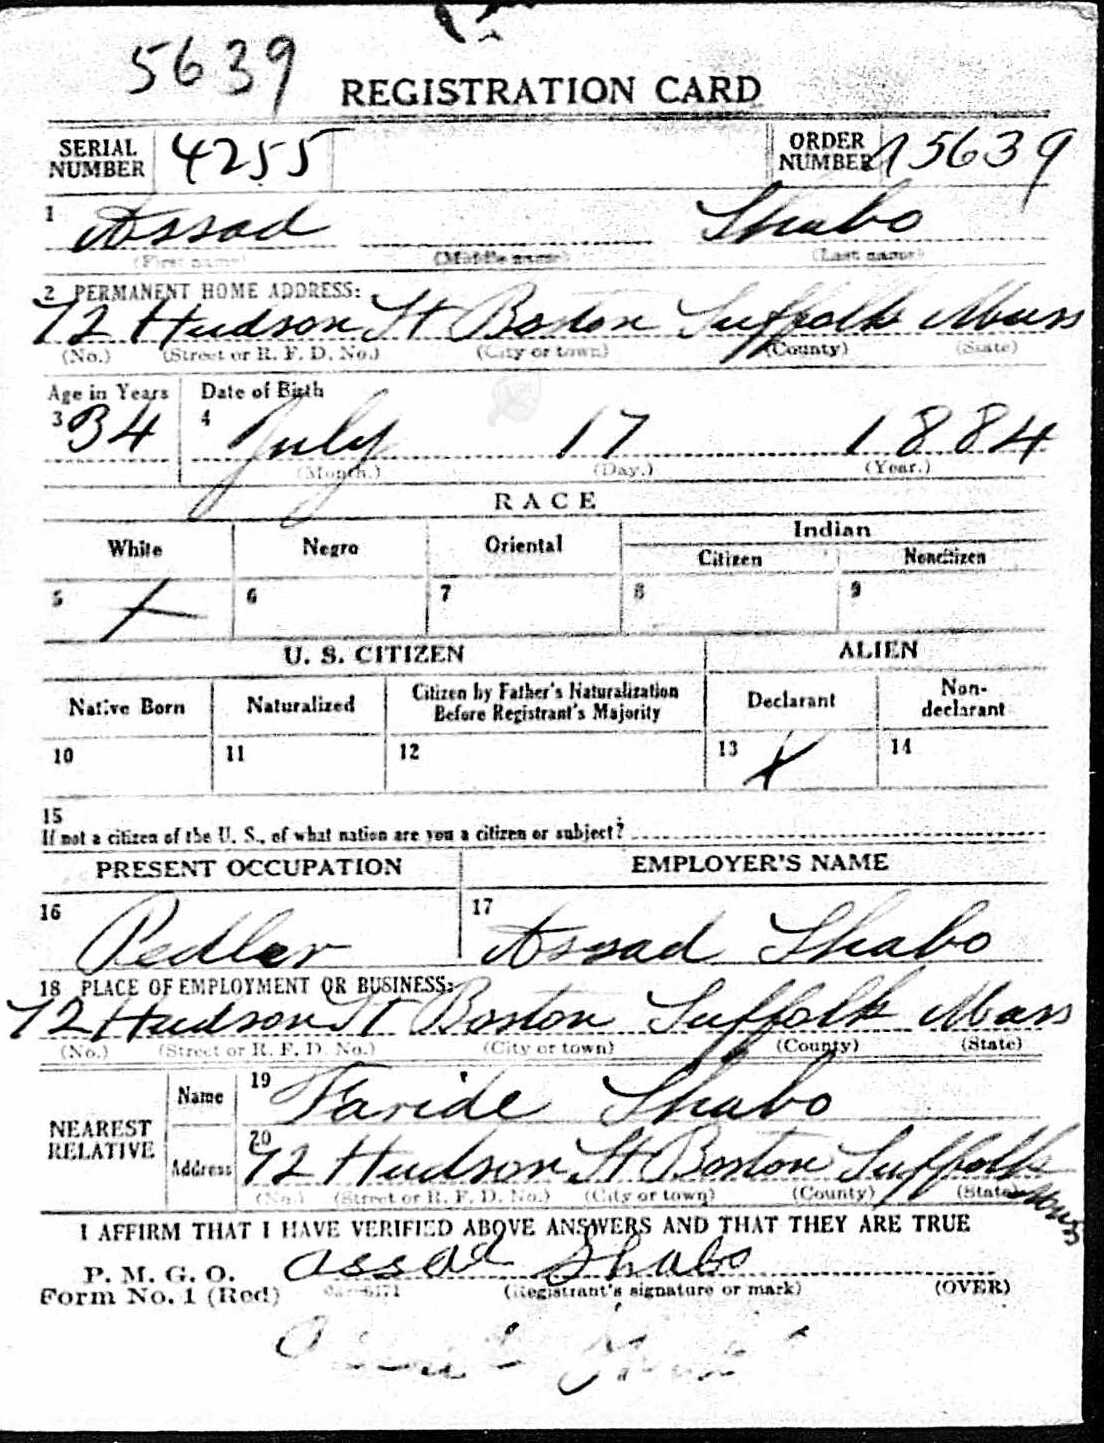 5639
REGISTRATION CARD
SERIAL NUMBER 4255 ORDER NUMBER A5639
1 Assad Shabo
(First name) (Middle name) (Last name)
2 PERMANENT HOME ADDRESS:
72 Hudson St Boston Suffolk Mass
(No.) (Street or R. F. D. No.) (City or town) (County) (State)
Age in Years Date of Birth
3 34 4 July 17 1884
(Month.) (Day.) (Year.)
RACE
White Negro Oriental Indian
Citizen Noncitizen
5 X 6 7 8 9
U. S. CITIZEN ALIEN
Native Born Naturalized Citizen by Father's Naturalization Before Registrant's Majority Declarant Non-declarant
10 11 12 13 X 14
15
If not a citizen of the U. S., of what nation are you a citizen or subject?
PRESENT OCCUPATION EMPLOYER'S NAME
16 Pedler 17 Assad Shabo
18 PLACE OF EMPLOYMENT OR BUSINESS:
72 Hudson St Boston Suffolk Mass
(No.) (Street or R. F. D. No.) (City or town) (County) (State)
NEAREST RELATIVE Name 19 Faride Shabo
Address 20 72 Hudson St Boston Suffolk Mass
(No.) (Street or R. F. D. No.) (City or town) (County) (State)
I AFFIRM THAT I HAVE VERIFIED ABOVE ANSWERS AND THAT THEY ARE TRUE
P. M. G. O.
Form No. 1 (Red) assad Shabo
(Registrant's signature or mark) (OVER)